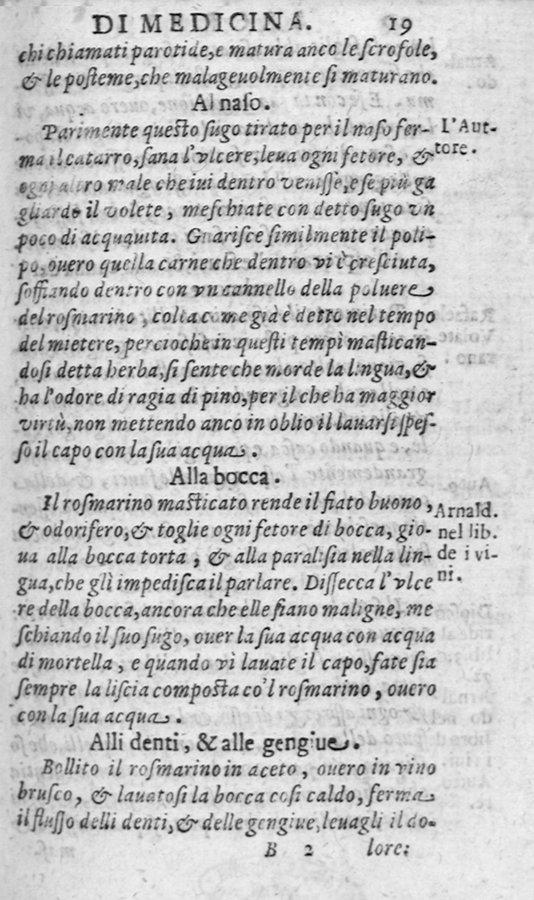 DI MEDICINA. 19
chi chiamati parotide, e matura anco le scrofole,
& le posteme, che malageuolmente si maturano.
Al naso.
Parimente questo sugo tirato per il naso fer-
ma il catarro, sana l'vlcere, leua ogni fetore, &
L'Aut-
tore.
ogni altro male che iui dentro venisse, e se più ga
gliardo il volete, meschiate con detto sugo vn
poco di acquauita. Guarisce similmente il poli-
po, ouero quella carne che dentro vi è cresciuta,
soffiando dentro con vn cannello della poluere
del rosmarino, colta come già è detto nel tempo
del mietere, percioche in questi tempi mastican-
dosi detta herba, si sente che morde la lingua, &
ha l'odore di ragia di pino, per il che ha maggior
virtù, non mettendo anco in oblio il lauarsi spes-
so il capo con la sua acqua.
Alla bocca.
Il rosmarino masticato rende il fiato buono,
& odorifero, & toglie ogni fetore di bocca, gio-
ua alla bocca torta, & alla paralisia nella lin-
gua, che gli impedisca il parlare. Dissecca l'vlce
Arnald.
nel lib.
de i vi-
ni.
re della bocca, ancora che elle siano maligne, me
schiando il suo sugo, ouer la sua acqua con acqua
di mortella, e quando vi lauate il capo, fate sia
sempre la liscia composta co'l rosmarino, ouero
con la sua acqua.
Alli denti, & alle gengiue.
Bollito il rosmarino in aceto, ouero in vino
brusco, & lauatosi la bocca così caldo, ferma
il flusso delli denti, & delle gengiue, leuagli il do-
B 2 lore: